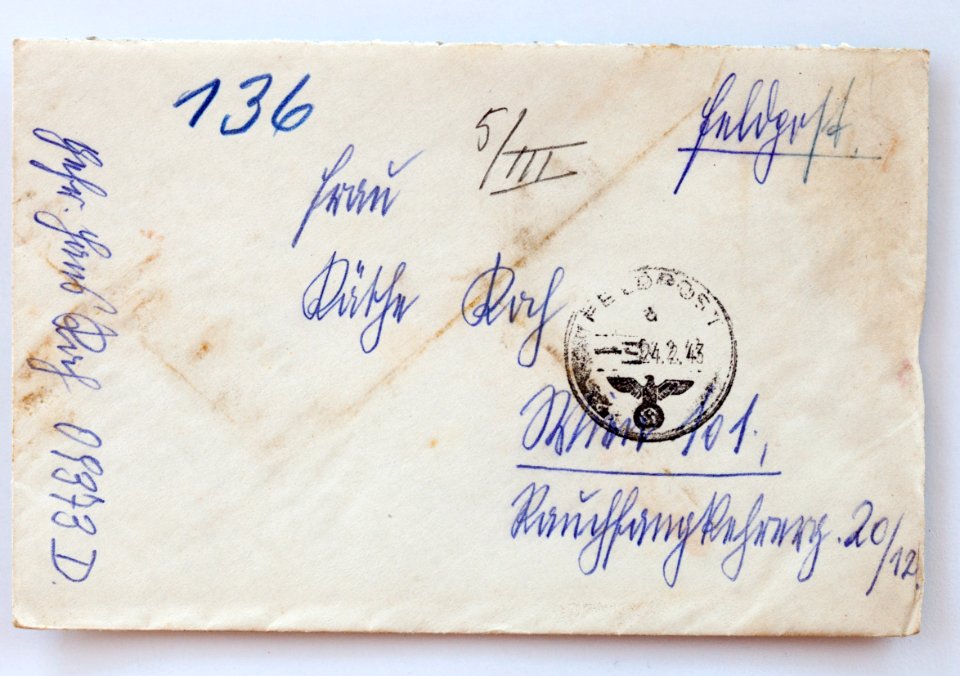 136
5/III
Feldpost.
Frau
Käthe Koch
FELDPOST
a
24.2.43
Wien 101.,
Rauchfangkehrerg. 20/12.
Gefr. Hans Koch 09373 D.